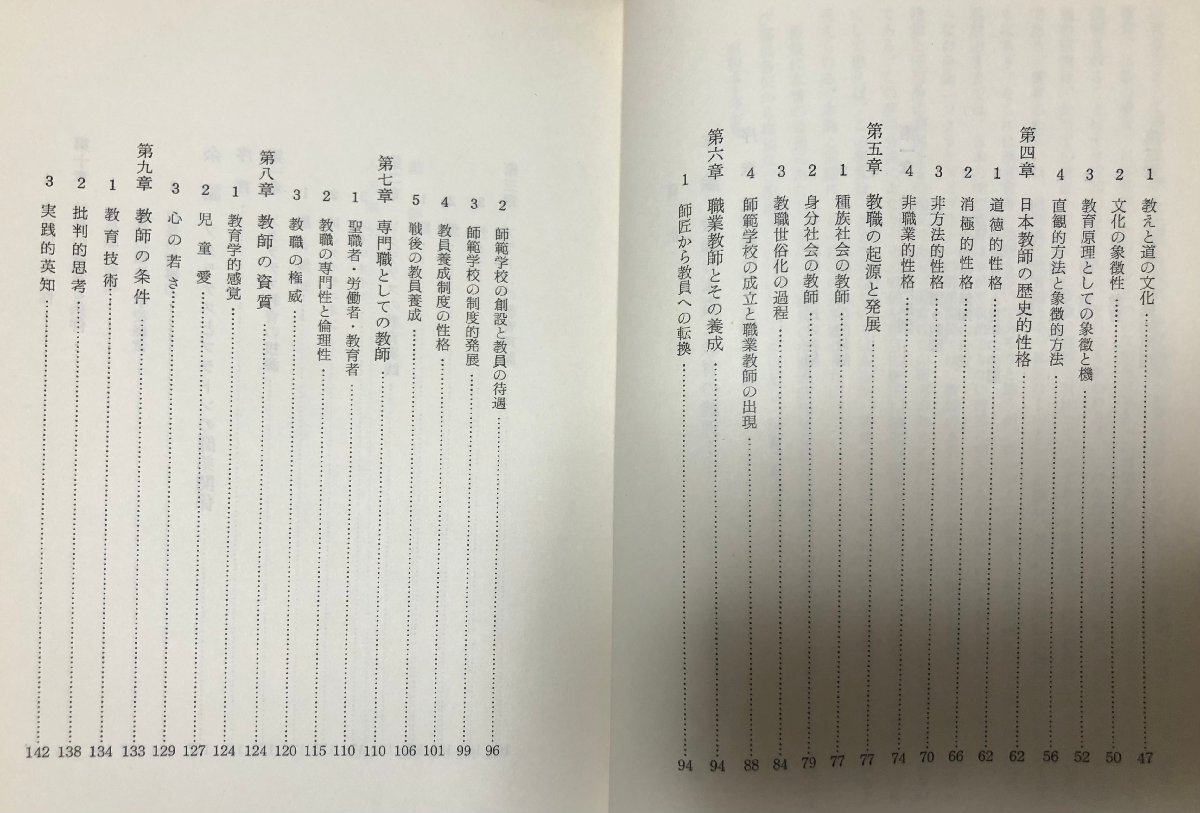 1 教えと道の文化 47
2 文化の象徴性 50
3 教育原理としての象徴と機 52
4 直観的方法と象徴的方法 56
第四章 日本教師の歴史的性格 62
1 道徳的性格 62
2 消極的性格 66
3 非方法的性格 70
4 非職業的性格 74
第五章 教職の起源と発展 77
1 種族社会の教師 77
2 身分社会の教師 79
3 教職世俗化の過程 84
4 師範学校の成立と職業教師の出現 88
第六章 職業教師とその養成 94
1 師匠から教員への転換 94
2 師範学校の創設と教員の待遇 96
3 師範学校の制度的発展 99
4 教員養成制度の性格 101
5 戦後の教員養成 106
第七章 専門職としての教師 110
1 聖職者・労働者・教育者 110
2 教職の専門性と倫理性 115
3 教職の権威 120
第八章 教師の資質 124
1 教育学的感覚 124
2 児童愛 127
3 心の若さ 129
第九章 教師の条件 133
1 教育技術 134
2 批判的思考 138
3 実践的英知 142